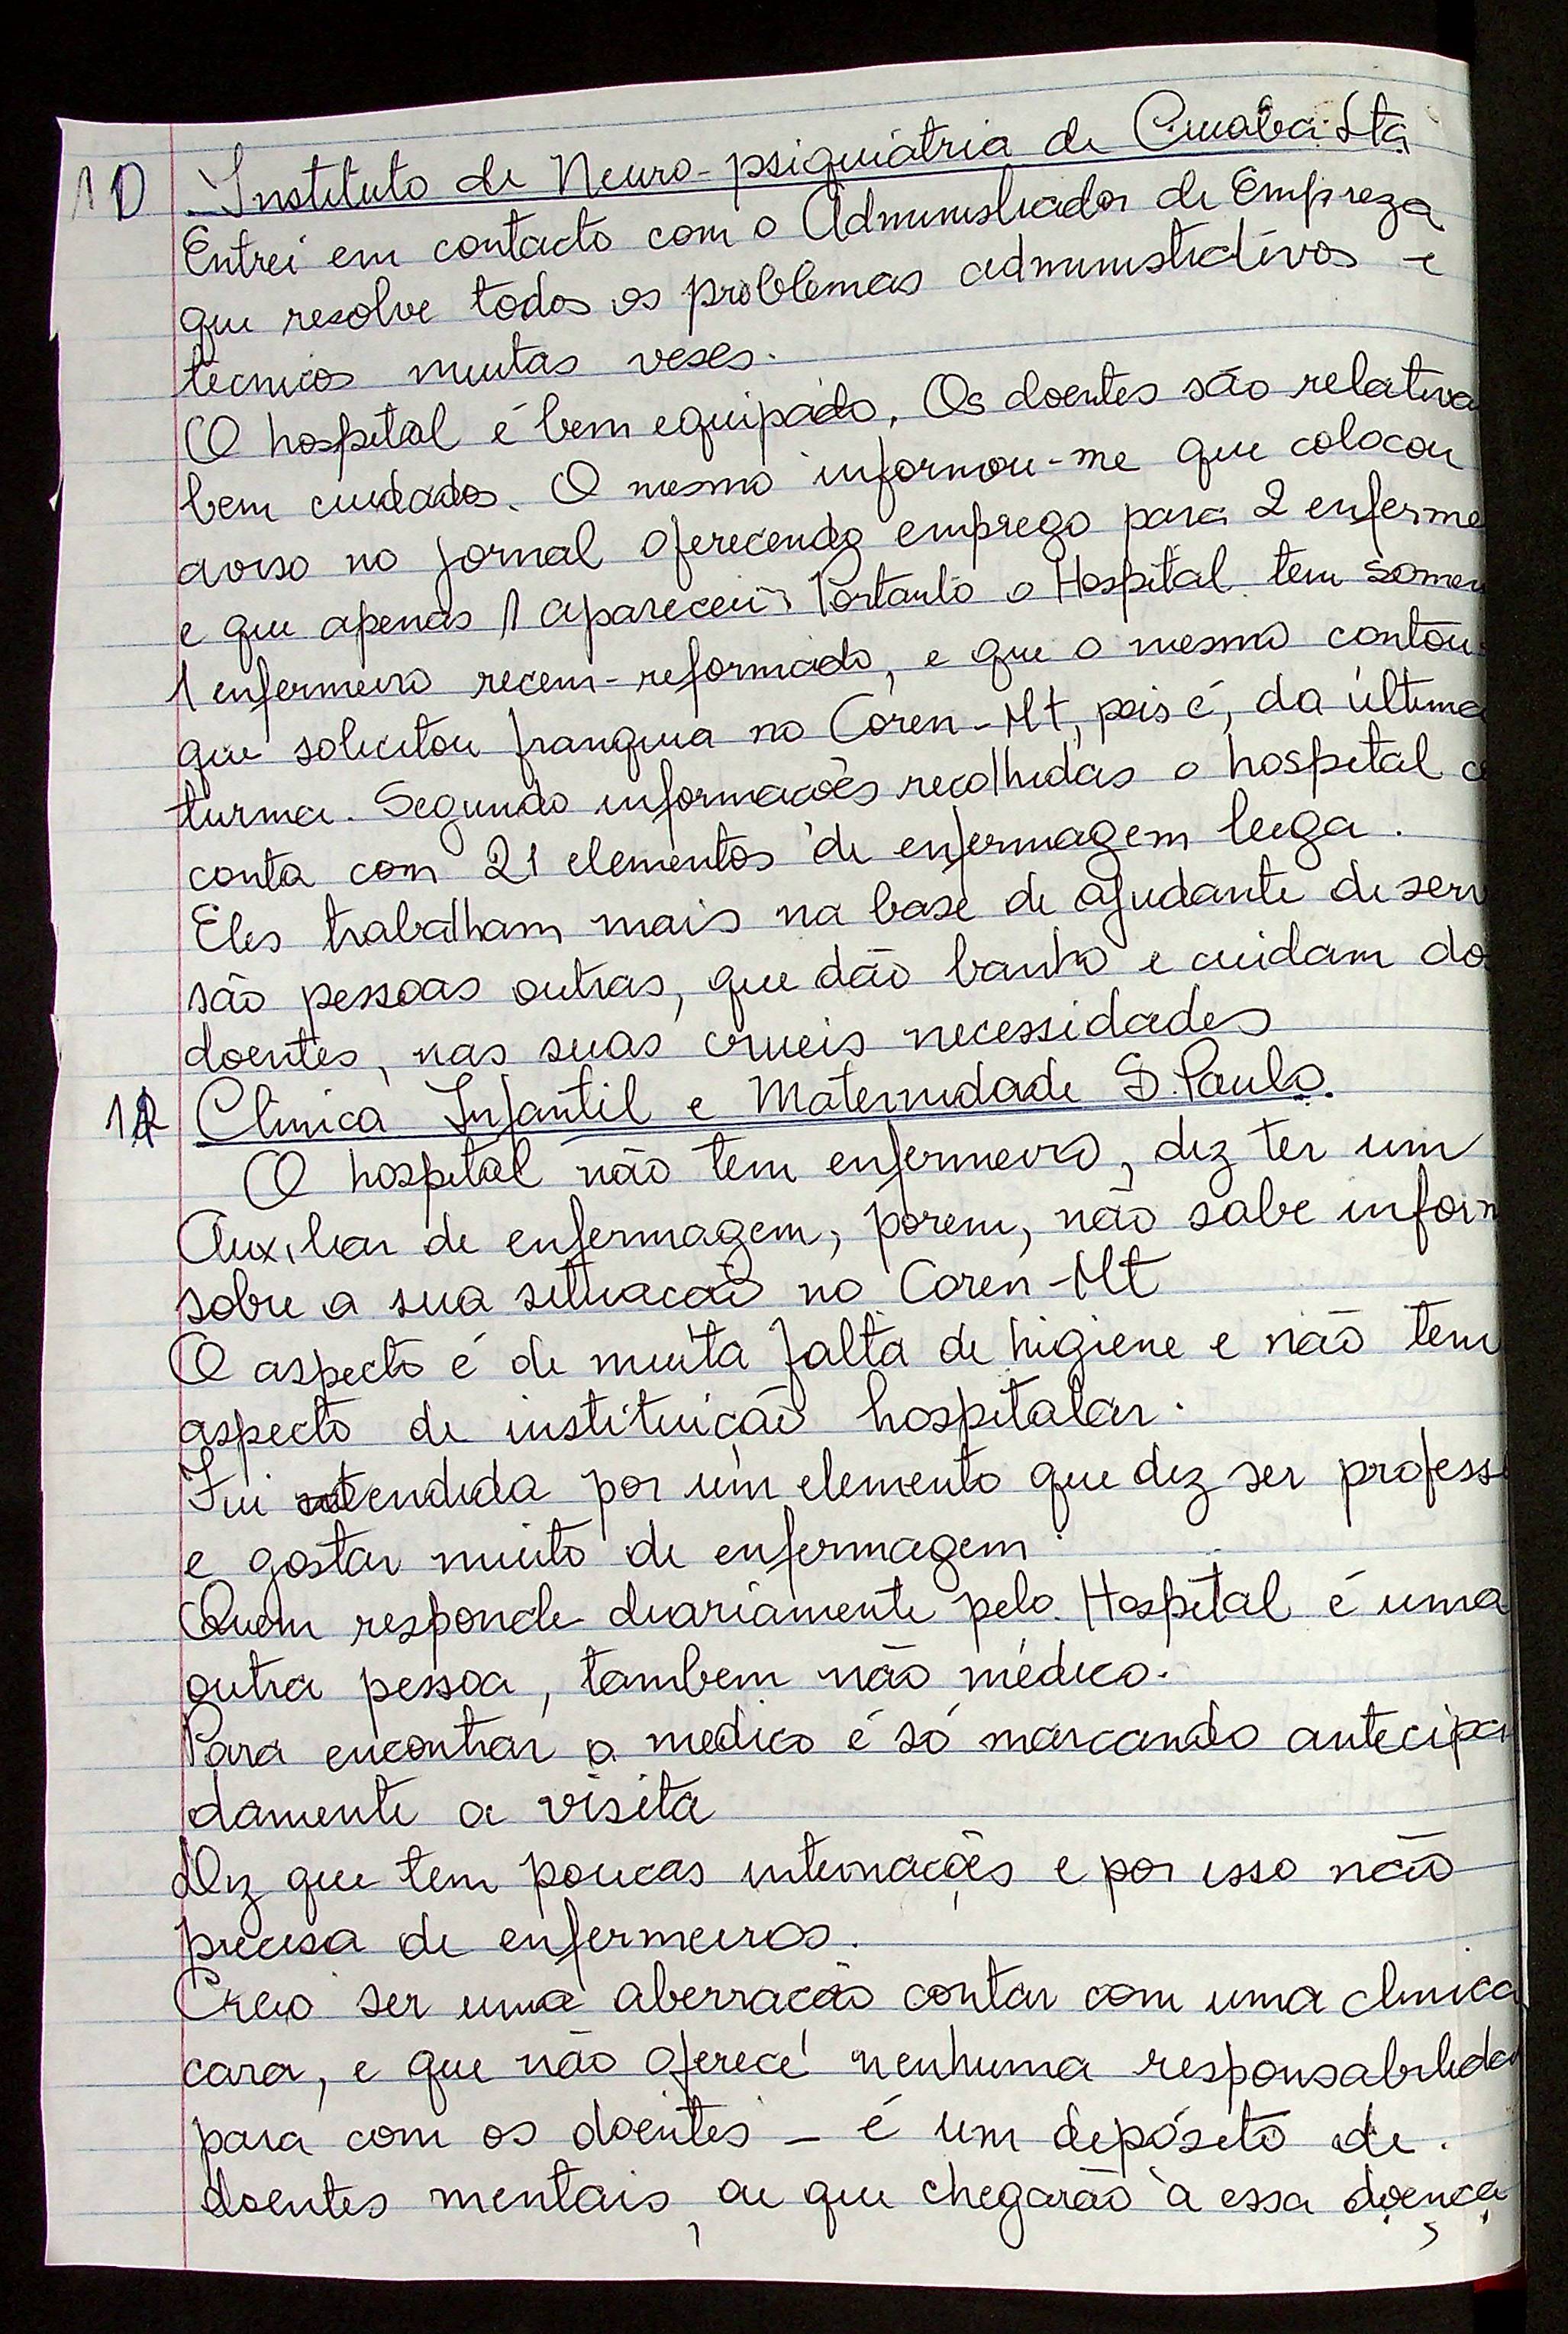 10 Instituto de Neuro-psiquiátria de Cuiabá Lta
Entrei em contacto com o Administrador de Empreza
que resolve todos os problemas administrativos e
técnicos muitas veses.
O hospital é bem equipado. Os doentes são relativa
bem cuidados. O mesmo informou-me que colocou
aviso no jornal oferecendo emprego para 2 enferme
e que apenas 1 apareceu. Portanto o Hospital tem somen
1 enfermeiro recem-reformado, e que o mesmo contou
que solicitou franquia no Coren-Mt, pois é, da última
turma. Segundo informações recolhidas o hospital
conta com 21 elementos de enfermagem leiga.
Eles trabalham mais na base de ajudante de serv
são pessoas outras, que dão banho e cuidam do
doentes, nas suas crueis necessidades
Clinica Infantil e Maternidade S. Paulo.
O hospital não tem enfermeiro, diz ter um
Auxiliar de enfermagem, porem, não sabe inform
sobre a sua situacão no Coren-Mt
O aspecto é de muita falta de higiene e não tem
aspecto de instituição hospitalar.
Fui atendida por um elemento que diz ser profess
e gostar muito de enfermagem
Quem responde diariamente pelo Hospital é uma
outra pessoa, tambem não médico.
Para encontrar o medico é só marcando antecipa
damente a visita
Diz que tem poucas internações e por isso não
precisa de enfermeiros.
Creio ser uma aberracão contar com uma clinica
cara, e que não oferece nenhuma responsabilidad
para com os doentes - é um depósito de
doentes mentais, ou que chegarão à essa doença